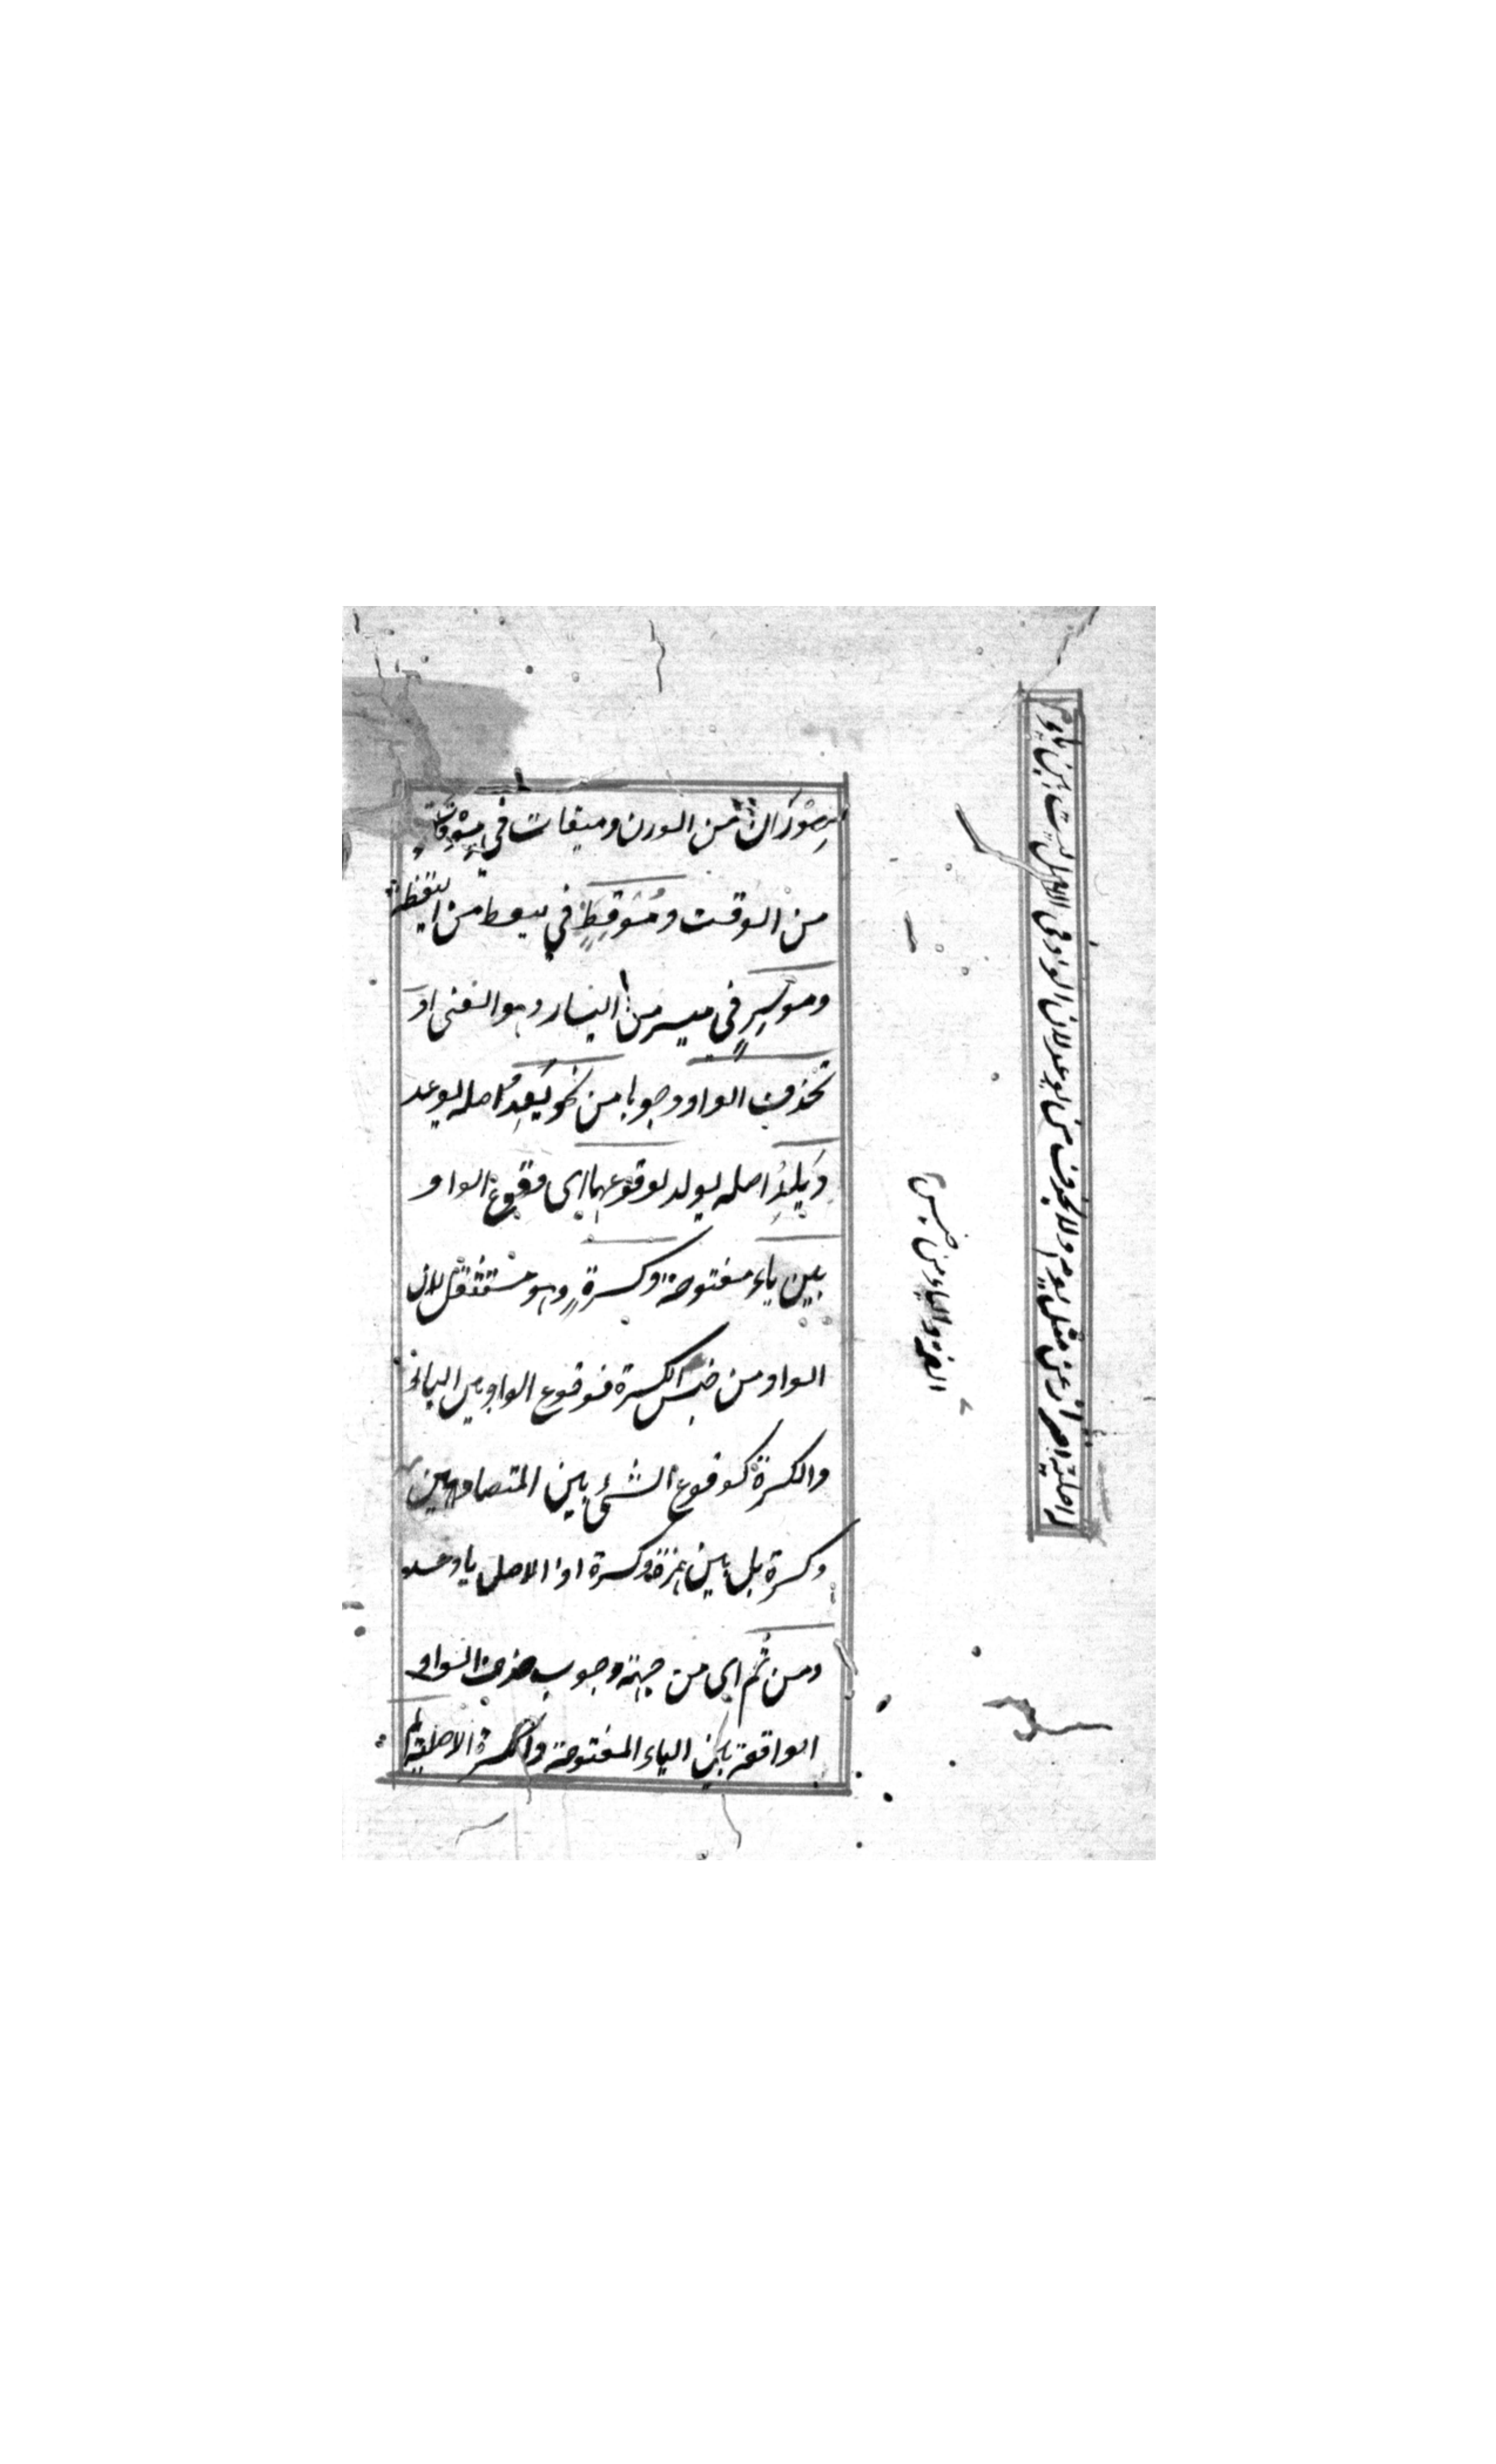 مِوْزَان من الوزن وميقات في مِوْقات
من الوقت ومُوقِظٍ في ييقظ من اليقظة
وموسِرٍ في ميسر من اليسار وهو الغنى او
تحذف الواو وجوبا من نحو يَعِدُ اصله يوعد
ويَلِدُ اصله يولد لوقوعها اى وقوع الواو
بين ياء مفتوحة وكسرة وهو مستثقل لان
الواو من جنس الكسرة فوقوع الواو بين الياء
والكسرة كوقوع الشئ بين المتصادمين
وكسرة بل بين همزة وكسرة اذ الاصل ياوعد
ومن ثُم اى من جهة وجوب حذف الواو
الواقعة بين الياء المفتوحة والكسرة الاصلية لم
الضمة والياء من جنس
اصلية احتراز عن مثل ولا يحذف من يوعد لان الواو في الاصل ليست بين ياء و